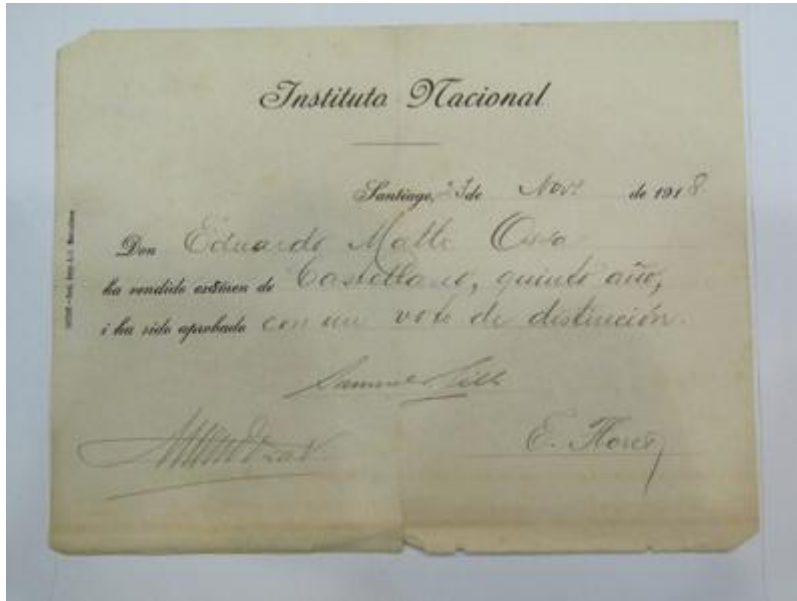 Instituto Nacional
Santiago, 23 de Nov. de 1918
Don Eduardo Matte
ha rendido exámen de Castellano, quinto año,
i ha sido aprobado con un voto de distinción.
Samuel
E. Flores